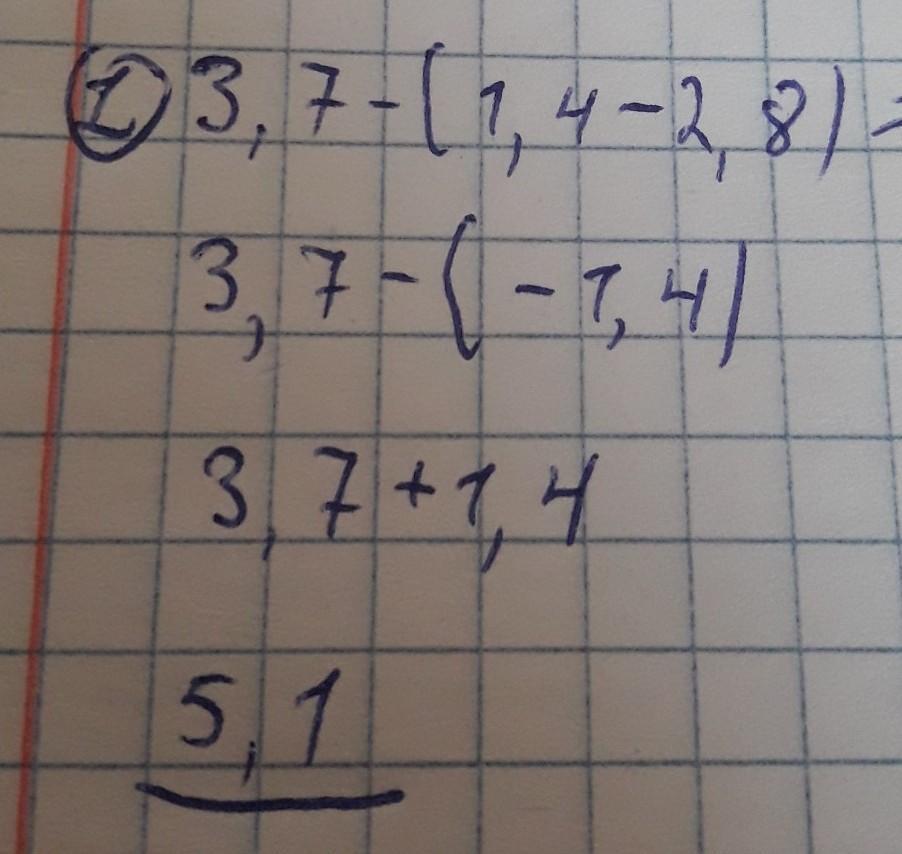 ① 3,7-(1,4-2,8)=
3,7-(-1,4)
3,7+1,4
5,1